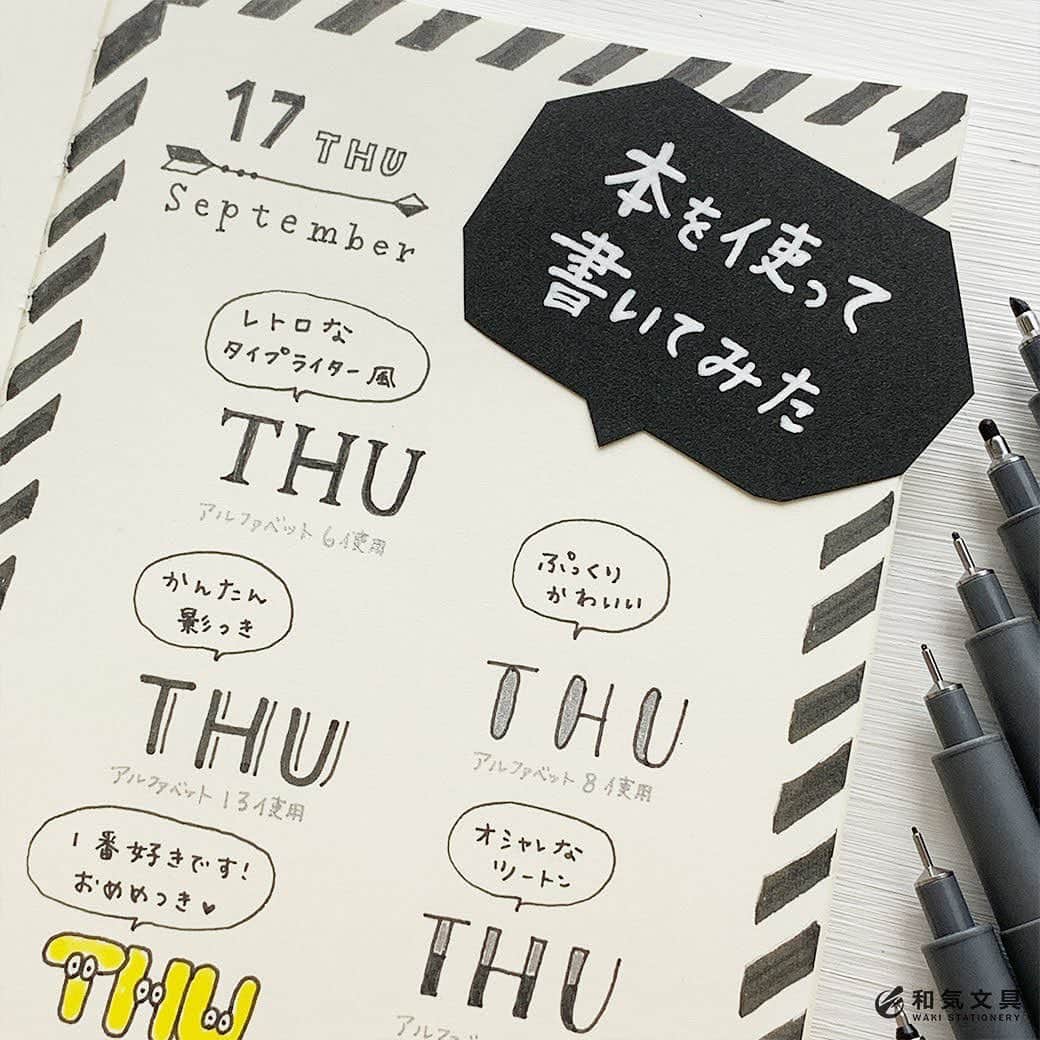 17 THU
September
本を使って
書いてみた
レトロな
タイプライター風
THU
アルファベット 6使用
かんたん
影つき
THU
アルファベット 13使用
ぷっくり
かわいい
THU
アルファベット 8使用
1番好きです!
おめめつき♥
THU
オシャレな
ツートン
THU
和気文具
WAKI STATIONERY